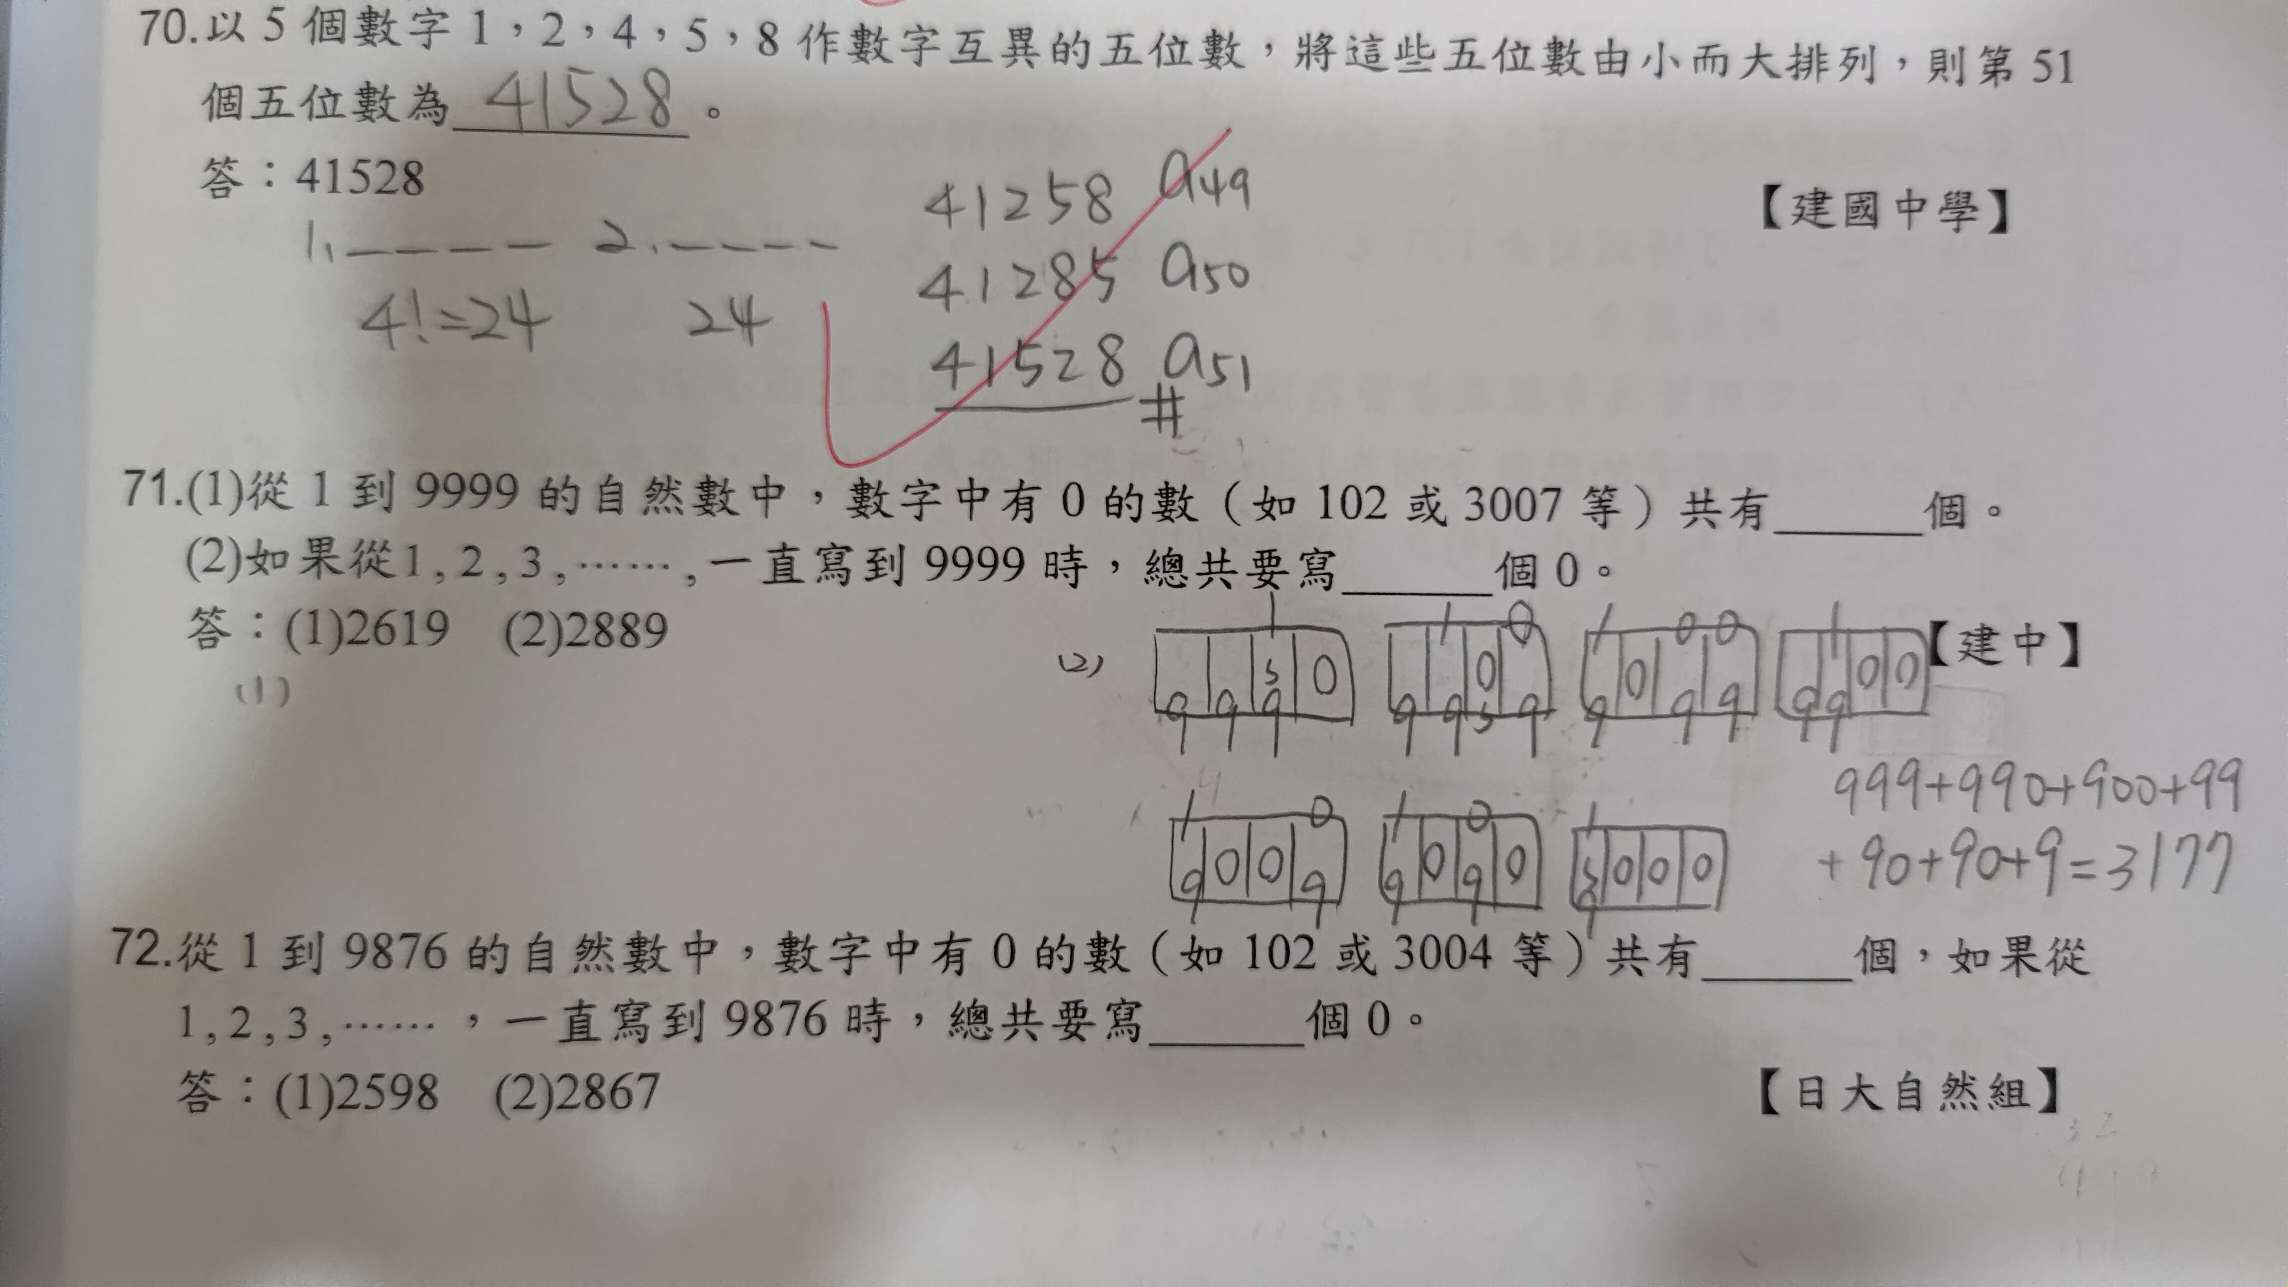 70.以 5 個數字 1，2，4，5，8 作數字互異的五位數，將這些五位數由小而大排列，則第 51
個五位數為 41528 。
答：41528
【建國中學】
1. _ _ _ _ 2. _ _ _ _
4!=24 24
41258 a49
41285 a50
41528 a51
#
71.(1)從 1 到 9999 的自然數中，數字中有 0 的數（如 102 或 3007 等）共有______個。
(2)如果從1 , 2 , 3 , …… , 一直寫到 9999 時，總共要寫______個 0。
答：(1)2619 (2)2889
【建中】
(1)
(2)
1 1 0 1 0 0 1
0 0 0 0 0
9 9 9 9 9 9 9 9 9 9 9
1 0 1 0 1
0 0 0 0 0 0 0
9 9 9 9 9
999+990+900+99
+90+90+9=3177
72.從 1 到 9876 的自然數中，數字中有 0 的數（如 102 或 3004 等）共有______個，如果從
1 , 2 , 3 , …… ，一直寫到 9876 時，總共要寫______個 0。
答：(1)2598 (2)2867
【日大自然組】